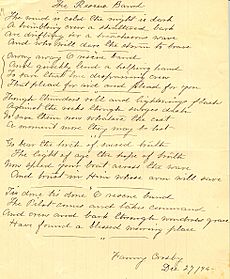 The Rescue Band
The wind is cold the night is dark
A trembling crew a shattered bark
Are drifting on a treacherous wave
And who will dare the storm to brave
Away away O rescue band
And quickly lend a helping hand
To save that lone despairing crew
That plead for aid and plead for you
Though thunders roll and lightnings flash
Against the rocks though surges dash
Go save them now whate'er the cost
A moment more they may be lost
Go bear the torch of sacred truth
The light of age the hope of youth
Now speed your boat across the wave
And trust in Him whose arm will save
Tis done tis done O rescue band
The Pilot comes and takes command
And crew and bark through wondrous grace
Have found a blessed mooring place
Fanny Crosby
Dec 27